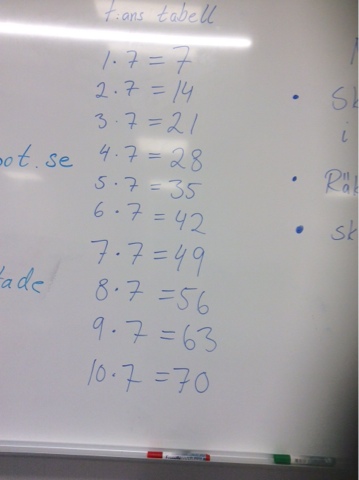 :ans tabell
1·7=7
2·7=14
3·7=21
4·7=28
5·7=35
6·7=42
7·7=49
8·7=56
9·7=63
10·7=70
oot.se
tade
• Sk
i
• Räk
• sk